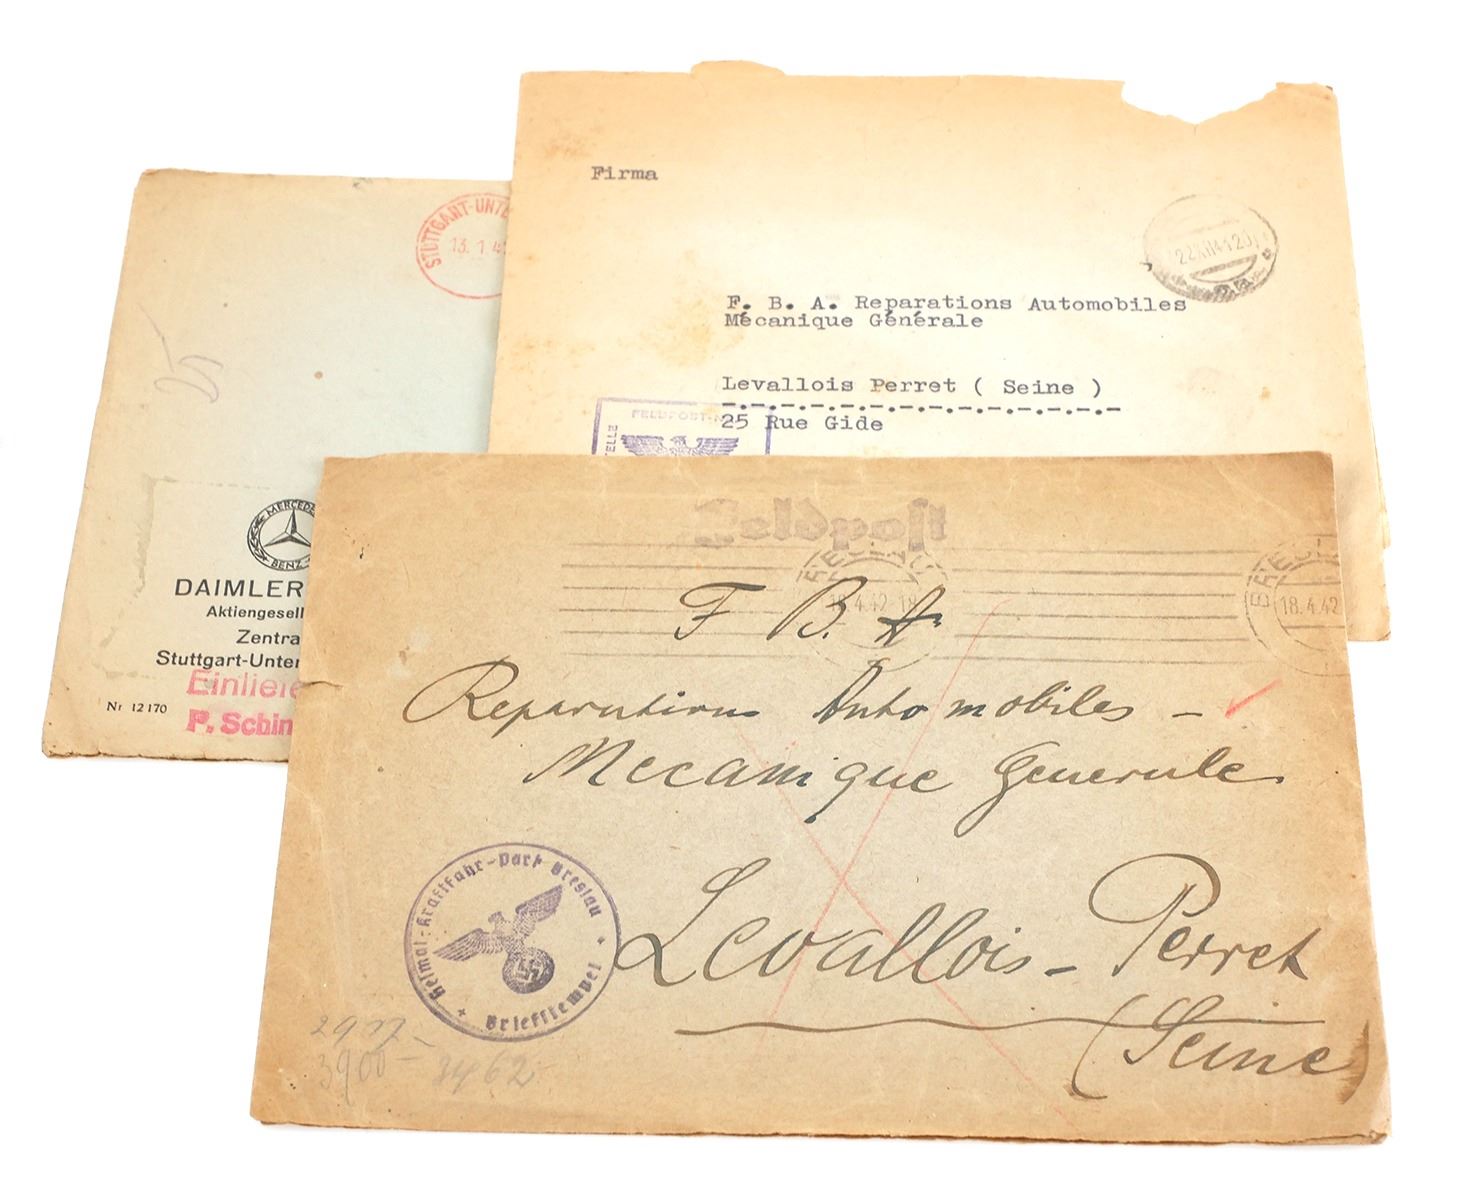 STUTTGART-UNTE
13. 1 4
MERCEDE
BENZ
DAIMLER
Aktiengesell
Zentra
Stuttgart-Unter
Einliefe
P. Schin
Nr 12170
Firma
22XII41 20
F. B. A. Reparations Automobiles
Mécanique Générale
Levallois Perret ( Seine )
25 Rue Gide
FELDPOST-N
TELLE
Feldpost
BRESLAU
18.4.42-18
BRESL
18.4.42
F B. A.
Reparations Automobiles -
Mecanique Generale
Levallois - Perret
(Seine)
Heimat-Kraftfahr-Park Breslau
Briefstempel
2977-
3900-
3462-